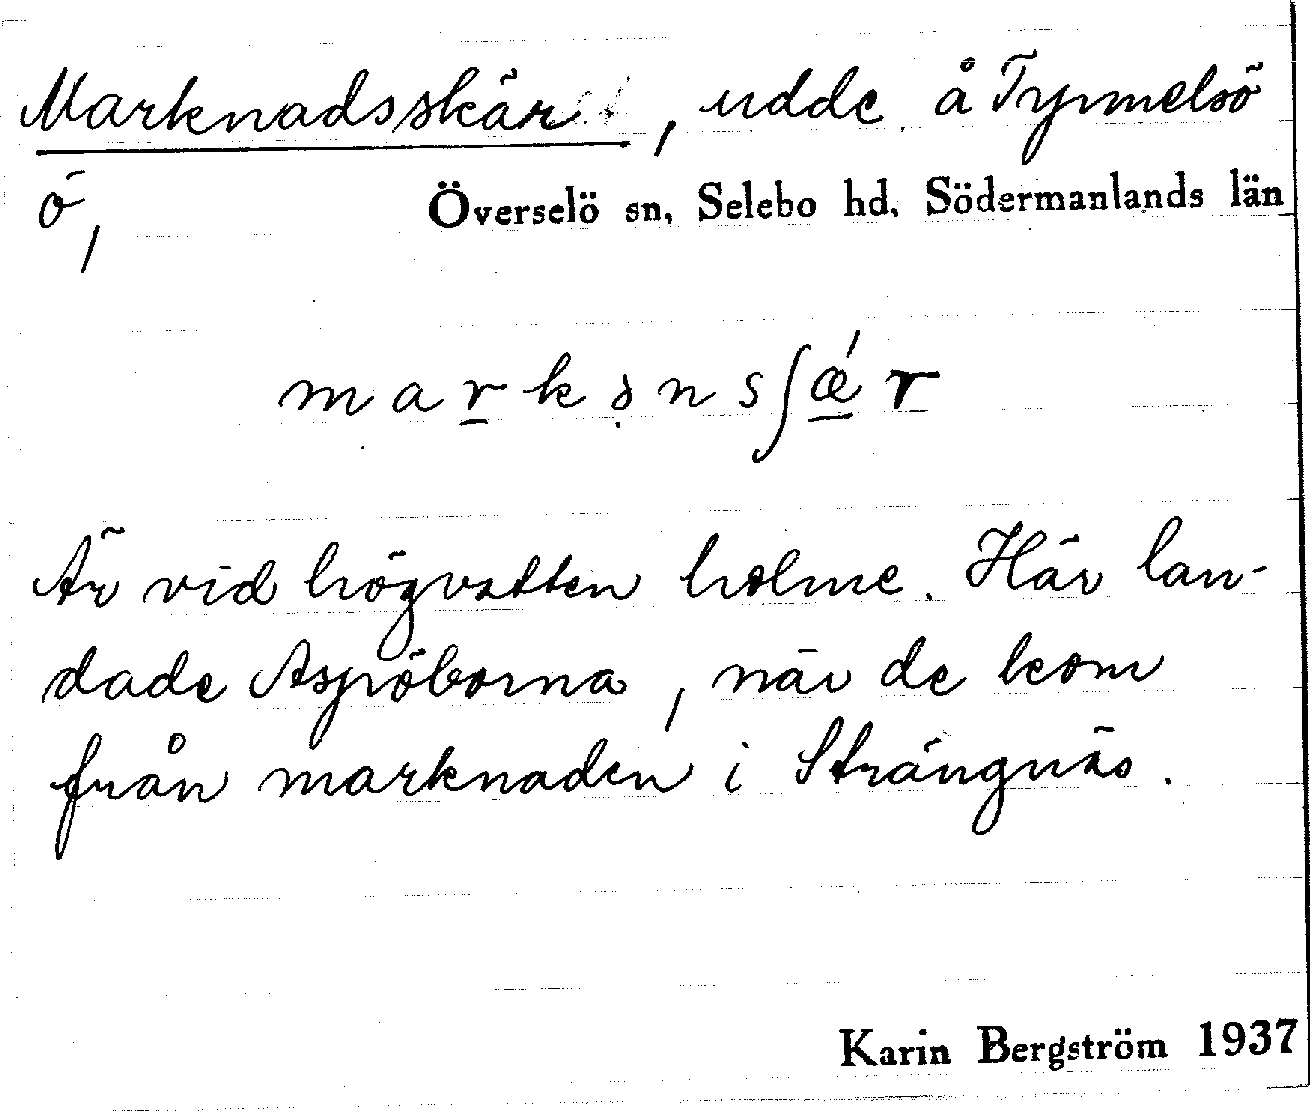 Marknadsskär, udde å Tynnelsö
ö,
Överselö sn, Selebo hd, Södermanlands län
markənsʃǽr
Är vid högvatten holme. Här lan-
dade Aspöborna, när de kom
från marknaden i Strängnäs.
Karin Bergström 1937